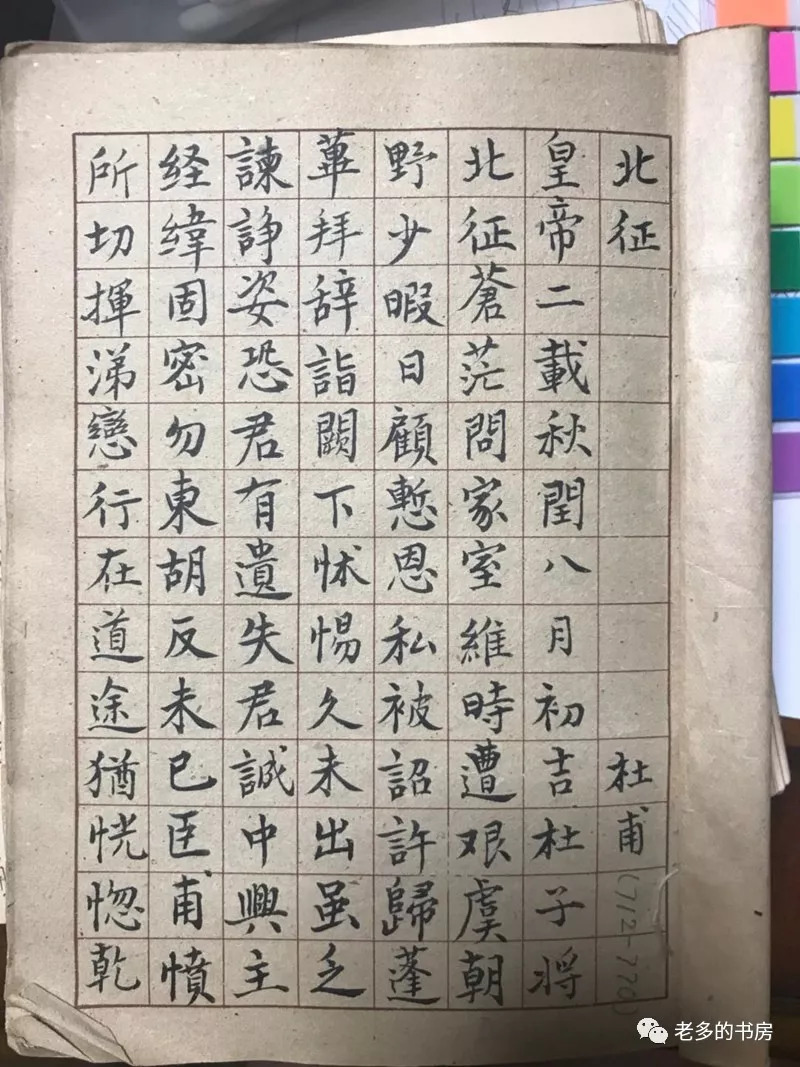 北征 杜甫(712-770)
皇帝二載秋閏八月初吉杜子将
北征蒼茫問家室維時遭艰虞朝
野少暇日顧慙恩私被詔許歸蓬
蓽拜辞詣闕下怵惕久未出虽乏
諫諍姿恐君有遺失君誠中興主
経緯固密勿東胡反未已臣甫憤
所切揮涕戀行在道途猶恍惚乾
老多的书房